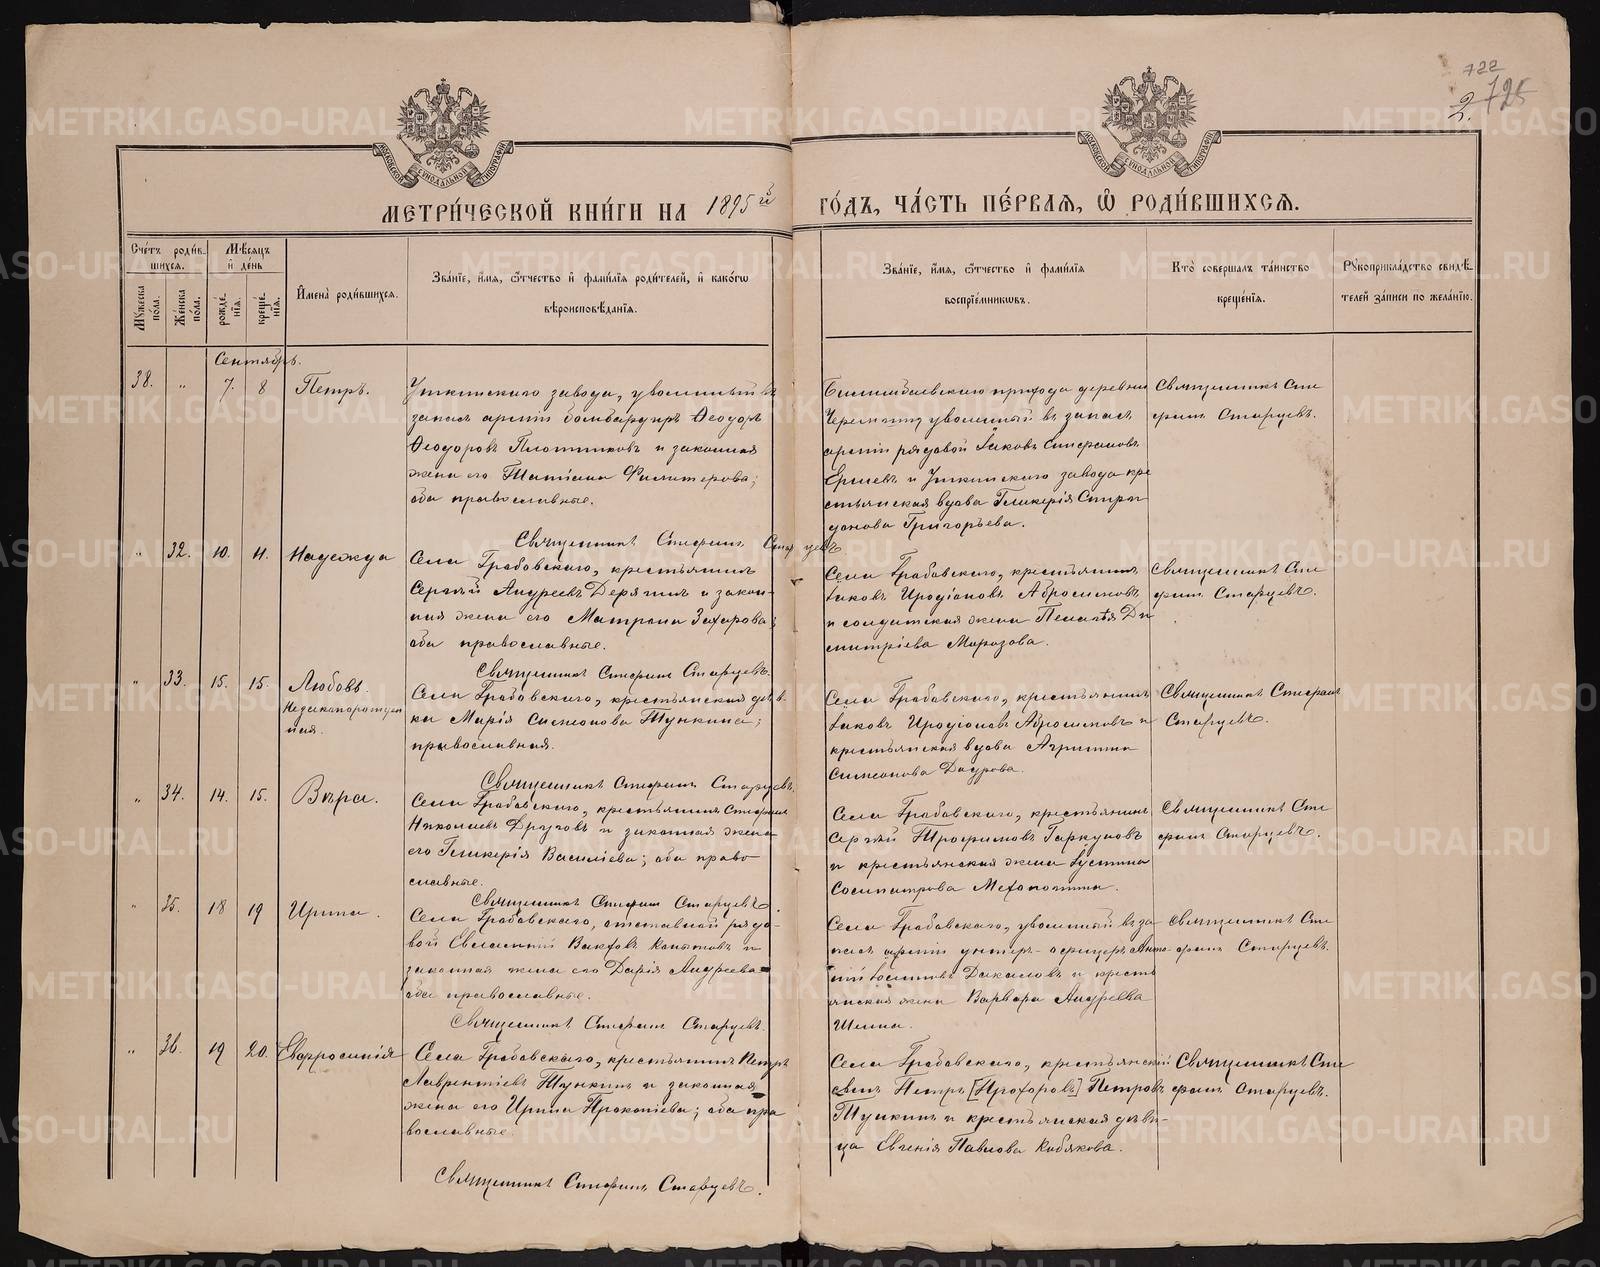 722
725
2.
МОСКОВСКОЙ СѴНОДАЛЬНОЙ ТИПОГРАФІИ
МОСКОВСКОЙ СѴНОДАЛЬНОЙ ТИПОГРАФІИ
МЕТРИ́ЧЕСКОЙ КНИ́ГИ НА 1895й ГО́ДЪ, ЧА́СТЬ ПЕ́РВАѦ, Ѡ РОДИ́ВШИХСѦ.
Сче́тъ роди́вшихся.
Мѣ́сяцъ и де́нь
Му́жеска по́ла.
Же́нска по́ла.
рожде́нїя.
креще́нїя.
И҆мена̀ роди́вшихся.
Зва́нїе, и҆́мя, ѻ҆́тчество и҆ фами́лїя роди́телей, и҆ како́гѡ
вѣроисповѣ́данїя.
Зва́нїе, и҆́мя, ѻ҆́тчество и҆ фами́лїя
воспрїе́мниковъ.
Кто̀ соверша́лъ та́инство
креще́нїя.
Рꙋкоприкла́дство свидѣ́-
телей за́писи по жела́нїю.
Сентябрь.
38. „ 7. 8 Петръ.
Уткинскаго завода, уволенный въ
запасъ арміи бомбардиръ Ѳеодоръ
Ѳеодоровъ Плотниковъ и законная
жена его Татіана
оба православные.
Священникъ Стефанъ Старцевъ
Билимбаевскаго прихода деревни
уволенный въ запасъ
арміи рядовой Іаковъ Стефановъ
Ершевъ и Уткинскаго завода кре
стьянская вдова Гликерія Спири
донова Григорьева.
Священникъ Сте
фанъ Старцевъ.
„ 32. 10. 11. Надежда
Села Грабовскаго, крестьянинъ
Сергѣй Андреевъ Дерягинъ и закон-
ная жена его Матрона Захарова;
оба православные.
Священникъ Стефанъ Старцевъ.
Села Грабовскаго, крестьянинъ
Іаковъ Иродіоновъ Абросимовъ
и солдатская жена Пелагѣя Ди
митріева Морозова.
Священникъ Сте
фанъ Старцевъ.
„ 33. 15. 15. Любовь.
Села Грабовскаго, крестьянская дѣв-
ка Марія Симеонова Тункина;
православная.
Священникъ Стефанъ Старцевъ.
Села Грабовскаго, крестьянинъ
Іаковъ Иродіоновъ Абросимовъ и
крестьянская вдова Агриппина
Симеонова Даурова.
Священникъ Стефанъ
Старцевъ.
„ 34. 14. 15. Вѣра.
Села Грабовскаго, крестьянинъ Стефанъ
Николаевъ Друговъ и законная жена
его Гликерія Василіева; оба право-
славные.
Священникъ Стефанъ Старцевъ.
Села Грабовскаго, крестьянинъ
Сергѣй Трофимовъ Гаркуновъ
и крестьянская жена Іустина
Сосипатрова Мехоношина.
Священникъ Сте
фанъ Старцевъ.
„ 35. 18 19 Ирина.
Села Грабовскаго, отставной рядо-
вой Евлампій Копытовъ и
законная жена его Дарія Андреева
оба православные.
Священникъ Стефанъ Старцевъ.
Села Грабовскаго, уволенный въ за-
пасъ арміи унтеръ-офицеръ Анто-
ній и кресть
янская жена Варвара Андреева
Шеина.
Священникъ Сте
фанъ Старцевъ.
„ 36. 19 20. Евфросинія
Села Грабовскаго, крестьянинъ Петръ
Лаврентіевъ Тункинъ и законная
жена его Ирина Прокопіева; оба пра
вославные.
Священникъ Стефанъ Старцевъ.
Села Грабовскаго, крестьянскій
сынъ Петръ [Прохоровъ] Петровъ
Тункинъ и крестьянская дѣви
ца Евгенія Павлова Кобякова.
Священникъ Сте
фанъ Старцевъ.
METRIKI.GASO-URAL.RU